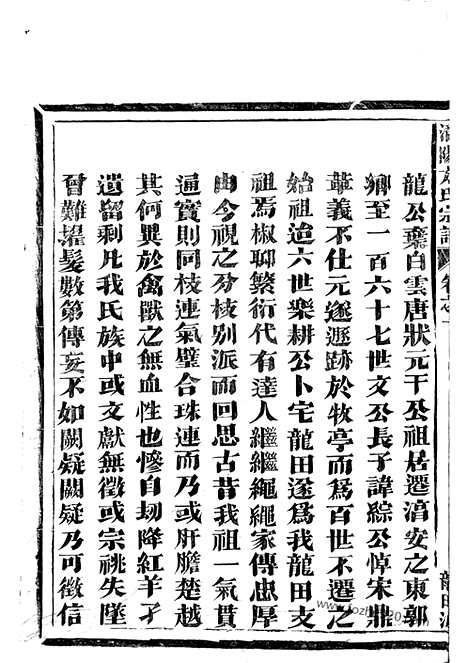 龍公棄白雲唐狀元干公祖居遷淳安之東郭
鄉至一百六十七世文公長子諱綜公悼宋鼎
革義不仕元遂遯跡於牧亭而爲百世不遷之
始祖迨六世樂耕公卜宅龍田遂爲我龍田支
祖焉椒聊繁衍代有達人繼繼繩繩家傳忠厚
由今視之分枝別派而回思古昔我祖一氣貫
通實則同枝連氣璧合珠連而乃或肝膽楚越
其何異於禽獸之無血性也慘自刼降紅羊孑
遺留剩凡我氏族中或文獻無徵或宗祧失墜
曾難擢髮數第傳妄不如闕疑闕疑乃可徵信
方氏宗譜
龍田派